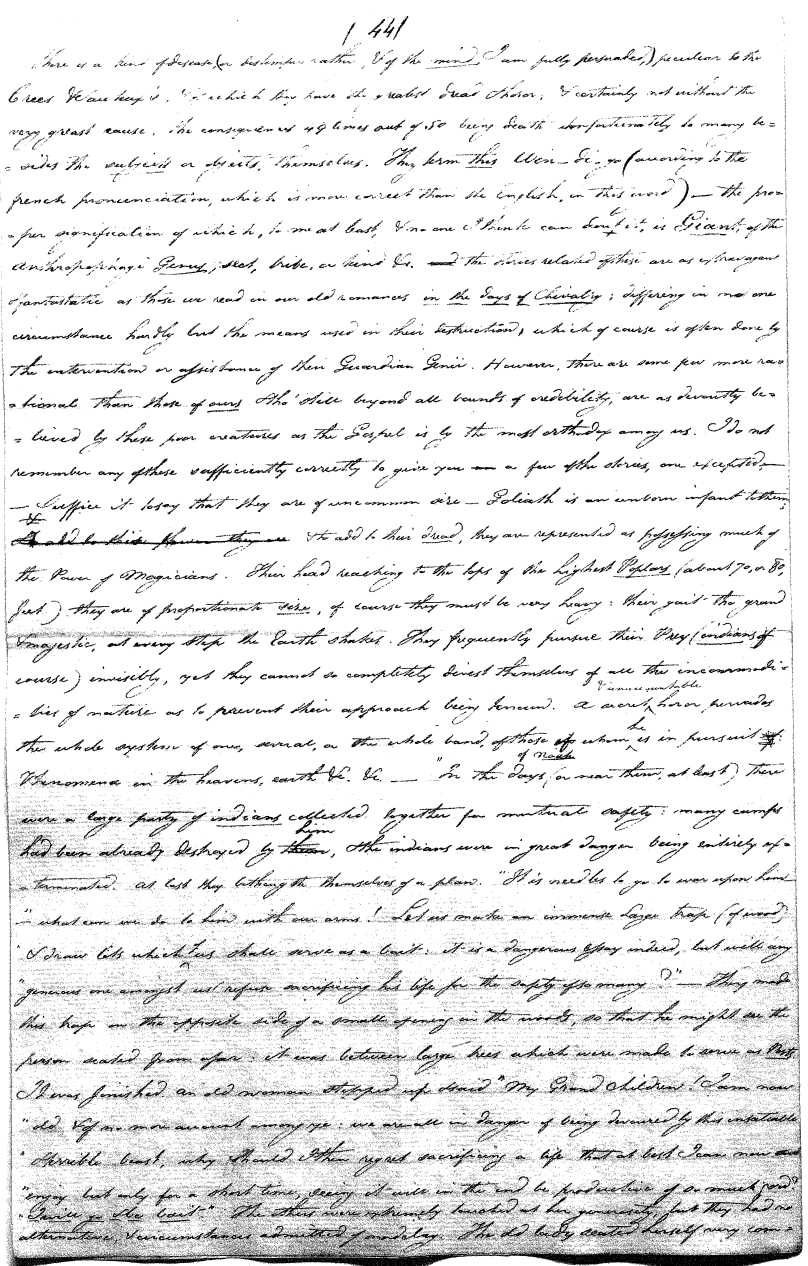 / 44/
There is a kind of disease (or distemper rather, & of the mind I am fully persuaded,) peculiar to the
Crees & Sauteux's, & of which they have the greatest dread & horor; & certainly not without the
very greast cause, the consequences 49 times out of 50 being death unfortunately to many be=
=sides the subjects or objects, themselves. They term this Win-di-go (according to the
french pronunciation, which is more correct than the English, in this word) — the pro=
=per signification of which, to me at least, & no one I think can doubt it, is Giant, of the
Anthropophagi Genus, sect, tribe, or kind &c. the stories related of these are as extravagant
& fantastic as those we read in our old romances in the days of Chivalry; differing in no one
circumstance hardly but the means used in their destruction, which of course is often done by
the intervention or assistance of their Guardian Genii. However, there are some few more ra=
=tional than those of ours & tho' still beyond all bounds of credibility, are as devoutly be=
=lieved by these poor creatures as the Gospel is by the most orthodox among us. I do not
remember any of these sufficiently correctly to give you a few of the stories, one excepted—
— Suffice it to say that they are of uncommon size — Goliath is an unborn infant to them;
& to add to their dread, they are represented as possessing much of
the Power of Magicians. Their head reaching to the tops of the highest Poplars (about 70, or 80,
feet) they are of proportionate size, of course they must be very heavy: their gait tho' grand
& majestic, at every step the Earth shakes. They frequently pursue their Prey (indians of
course) invisibly, yet they cannot so completely divest themselves of all the incommodi=
=ties of nature as to prevent their approach being known. A secret & unaccountable horor pervades
the whole system of one, several, or the whole band, of those of whom he is in pursuit of:
Phenomena in the heavens, earth &c. &c. — "In the days of Noah (or near them, at least) there
were a large party of indians collected together for mutual safety: many camps
had been already destroyed by him, & the indians were in great danger being entirely ex=
=terminated. At last they bethought themselves of a plan. "It is needless to go to war upon him
" what can we do to him with our arms! Let us make an immense large trap (of wood)
" & draw lots which of us shall serve as a bait: it is a dangerous Essay indeed, but will any
"generous one amongst us refuse sacrificing his life for the safety of so many?" — They made
this trap on the opposite side of a small opening in the woods, so that he might see the
person seated from afar: it was between large trees which were made to serve as Posts.
It was finished an old woman stepped up & said "My Grand Children! I am now
" old & of no more account among ye: we are all in danger of being devoured by this insatiable
" & terrible beast, why should I then regret sacrificing a life that at best I can now
"enjoy but only for a short time, seeing it will in the end be productive of so much good?
"I will go & be bait." The others were extremely touched at her generosity, but they had no
alternative, & circumstances admitted of no delay. The old lady seated herself very com=